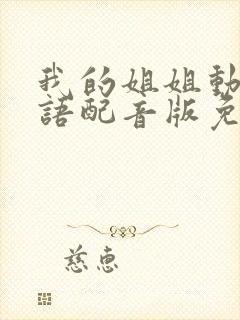 我的姐姐動
語配音版免
慈惠